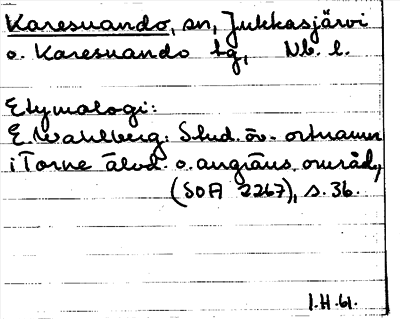 Karesuando, sn, Jukkasjärvi
o. Karesuando tg, Nb. l.
Etymologi:
E. Wahlberg: Stud. öv. ortnamn
i Torne älvd. o. angräns. områd.,
(SOA 2267), s. 36.
I.H. 61.